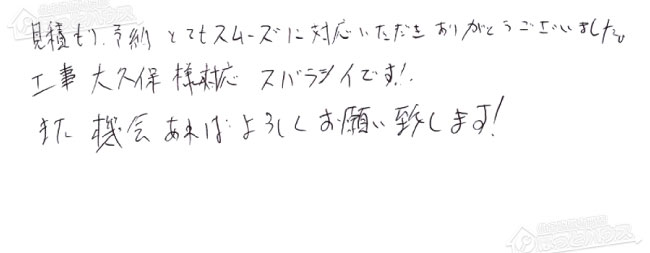 見積もり、予約 とてもスムーズに対応いただきありがとうございました。
工事 大久保様対応 スバラシイです!.
また 機会あればよろしくお願い致します!